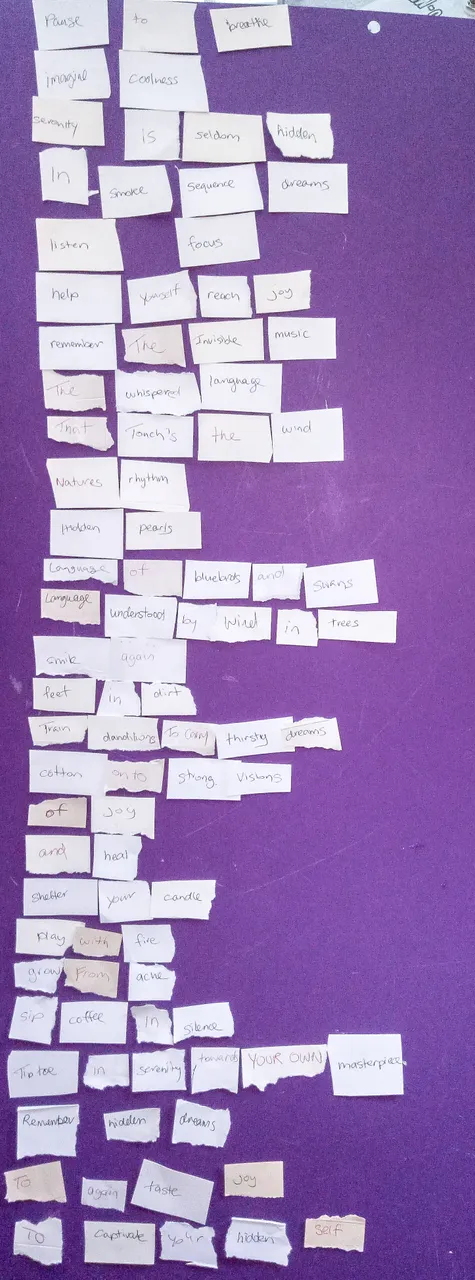 Pause to breathe
imagine coolness
serenity is seldom hidden
In smoke sequence dreams
listen focus
help yourself reach joy
remember The Invisible music
The whispered language
That Touch's the wind
Natures rhythm
Hidden pearls
Language of bluebirds and swans
Language understood by Wind in trees
smile again
feet in dirt
Train dandelions To carry thirsty dreams
cotton onto strong visions
of joy
and heal
shelter your candle
play with fire
grow From ache
sip coffee In silence
Tip toe in serenity towards YOUR OWN masterpiece
Remember hidden dreams
To again taste joy
To captivate your hidden self